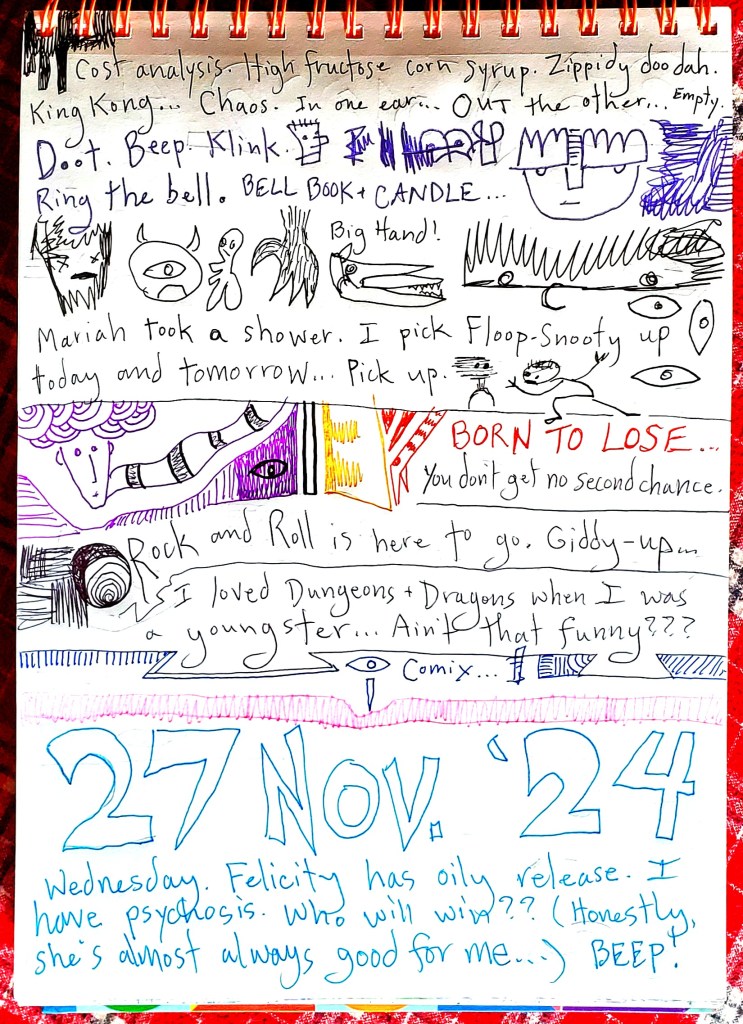 Cost analysis. High fructose corn syrup. Zippidy doo dah.
King Kong... Chaos. In one ear... OUT the other... Empty.
Doot. Beep. Klink.
Ring the bell. BELL BOOK + CANDLE...
Big Hand!
Mariah took a shower. I pick Floop-Snooty up
today and tomorrow... Pick up.
BORN TO LOSE...
You don't get no second chance.
Rock and Roll is here to go. Giddy-up...
I loved Dungeons + Dragons when I was
a youngster... Ain't that funny???
Comix...
27 Nov. '24
Wednesday. Felicity has oily release. I
have psychosis. Who will win?? (Honestly,
she's almost always good for me...) BEEP!